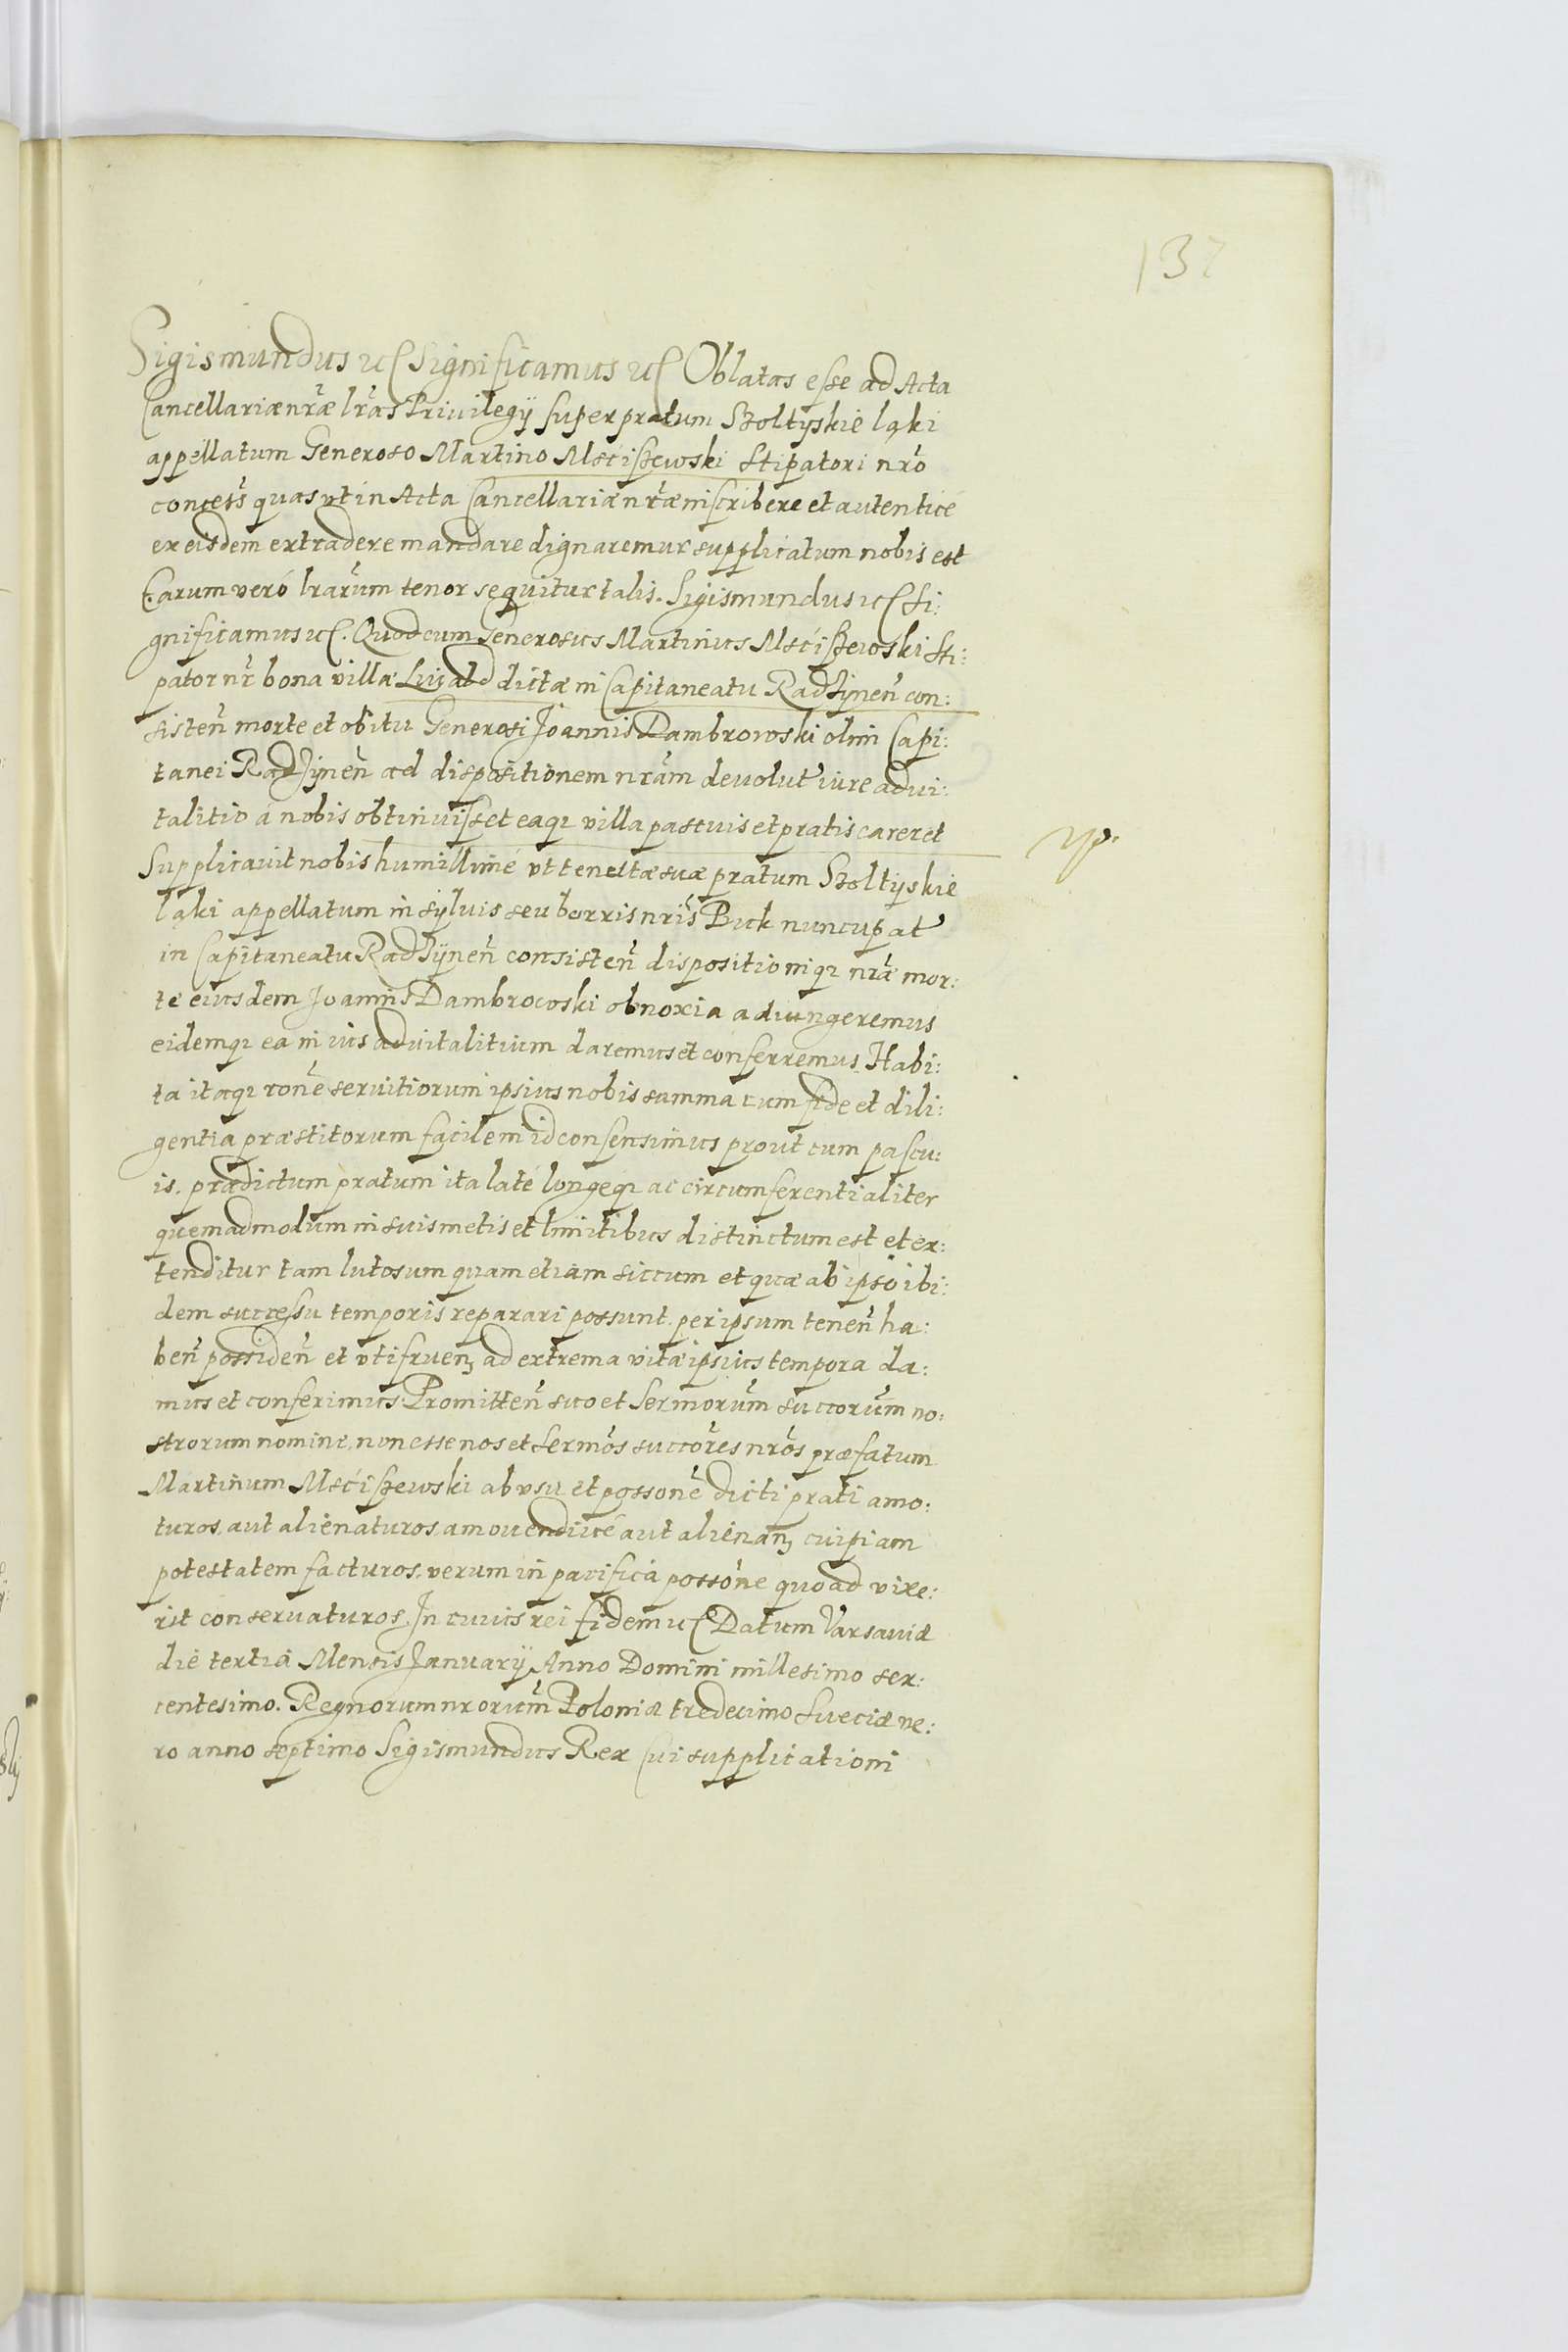 137
Sigismundus etc Significamus etc Oblatas esse ad Acta
Cancellariæ nr̃æ lr̃as Priuilegÿ super pratum Szoltÿskie łąki
appellatum Generoso Martino Msciszewski Stipatori nr̃o
concess̃ quas vt in Acta Cancellariæ nr̃æ inscribere et autenticé
ex eisdem extradere mandare dignaremur supplicatum nobis est
Earum veró lrarũm tenor sequitur talis. Sigismundus etc Si:
gnificamus etc. Quod cum Generosus Martinus Msciszewski Sti:
pator nr̃ bona villæ dictæ in Capitaneatu Radzÿneñ con:
sisteñ morte et obitu Generosi Joannis Dambrowski olim Capi:
tanei Radzÿneñ ad dispositionem nr̃am deuolut iure adui:
talitio á nobis obtinuisset eaqꝫ villa pascuis et pratis careret
Supplicauit nobis humillimé vt tenutæ suæ pratum Szoltÿskie
łąki appellatum in syluis seu borris nrĩs Buk nuncupat
in Capitaneatu Radzÿneñ consisteñ dispositioniqꝫ nr̃æ mor:
te eiusdem Joannis Dambrowski obnoxia adiungeremus
eidemqꝫ ea in ius aduitalitium daremus et conferremus. Habi:
ta itaqꝫ roñe seruitiorum ipsius nobis summa cum fide et dili:
gentia præstitorum facilem id consensimus prout cum pascu:
is. prædictum pratum ita laté longeqꝫ ac circumferentialiter
quemadmodum in suis metis et limitibus distinctum est et ex:
tenditur tam lutosum quam etiam siccum et quæ ab ipso ibi:
dem successu temporis reparari possunt. per ipsum teneñ ha:
beñ possideñ et vtifrueñ ad extrema vitæ ipsius tempora da:
mus et conferimus. Promitteñ suo et Sermorũm succorũm no:
strorum nomine, non esse nos et Sermõs succorẽs nrõs præfatum
Martinum Msciszewski ab vsu et possonẽ dicti prati amo:
turos, aut alienaturos, amouendiué aut alienañ cuipiam
potestatem facturos, verum in pacificá possonẽ quoad vixe:
rit conseruaturos. In cuius rei fidem etc Datum Varsauiæ
die tertiá Mensis Januarÿ Anno Domini millesimo sex:
centesimo. Regnorum nrorũm Poloniæ tredecimo Sueciæ ve:
ro anno septimo Sigismundus Rex Cui supplicationi